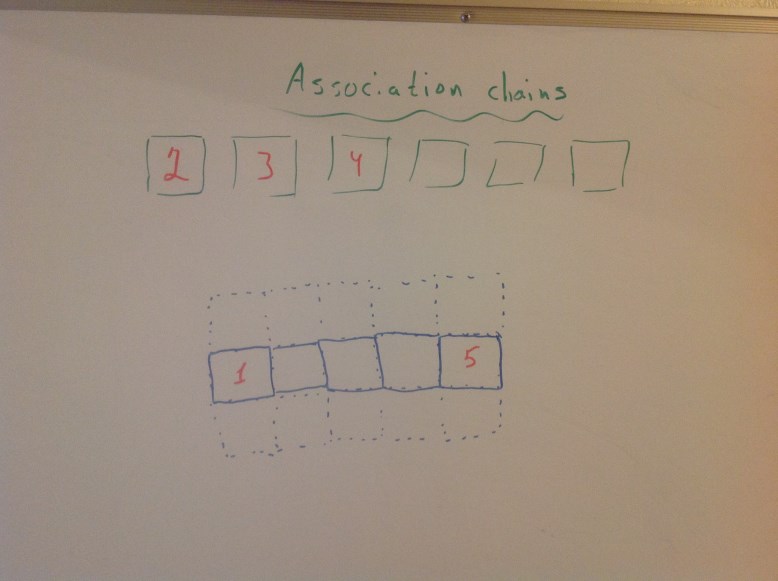 Association chains
2 3 4
1 5